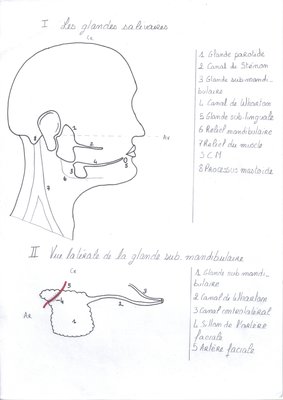 I Les glandes salivaires
Cr
1 Glande parotide
2 Canal de Sténon
3 Glande sub.mandi-
bulaire
4 Canal de Wharton
5 Glande sublinguale
6 Relief mandibulaire
7 Relief du muscle
S.C.M
8 Processus mastoïde
1
2
Av
8
4
5
3
6
7
II Vue latérale de la glande sub.mandibulaire
Cr
1 Glande sub mandi-
bulaire
2 Canal de Wharton
3 Canal controlatéral
4 Sillon de l'artère
faciale
5 Artère faciale
5
3
4
2
Ar
1